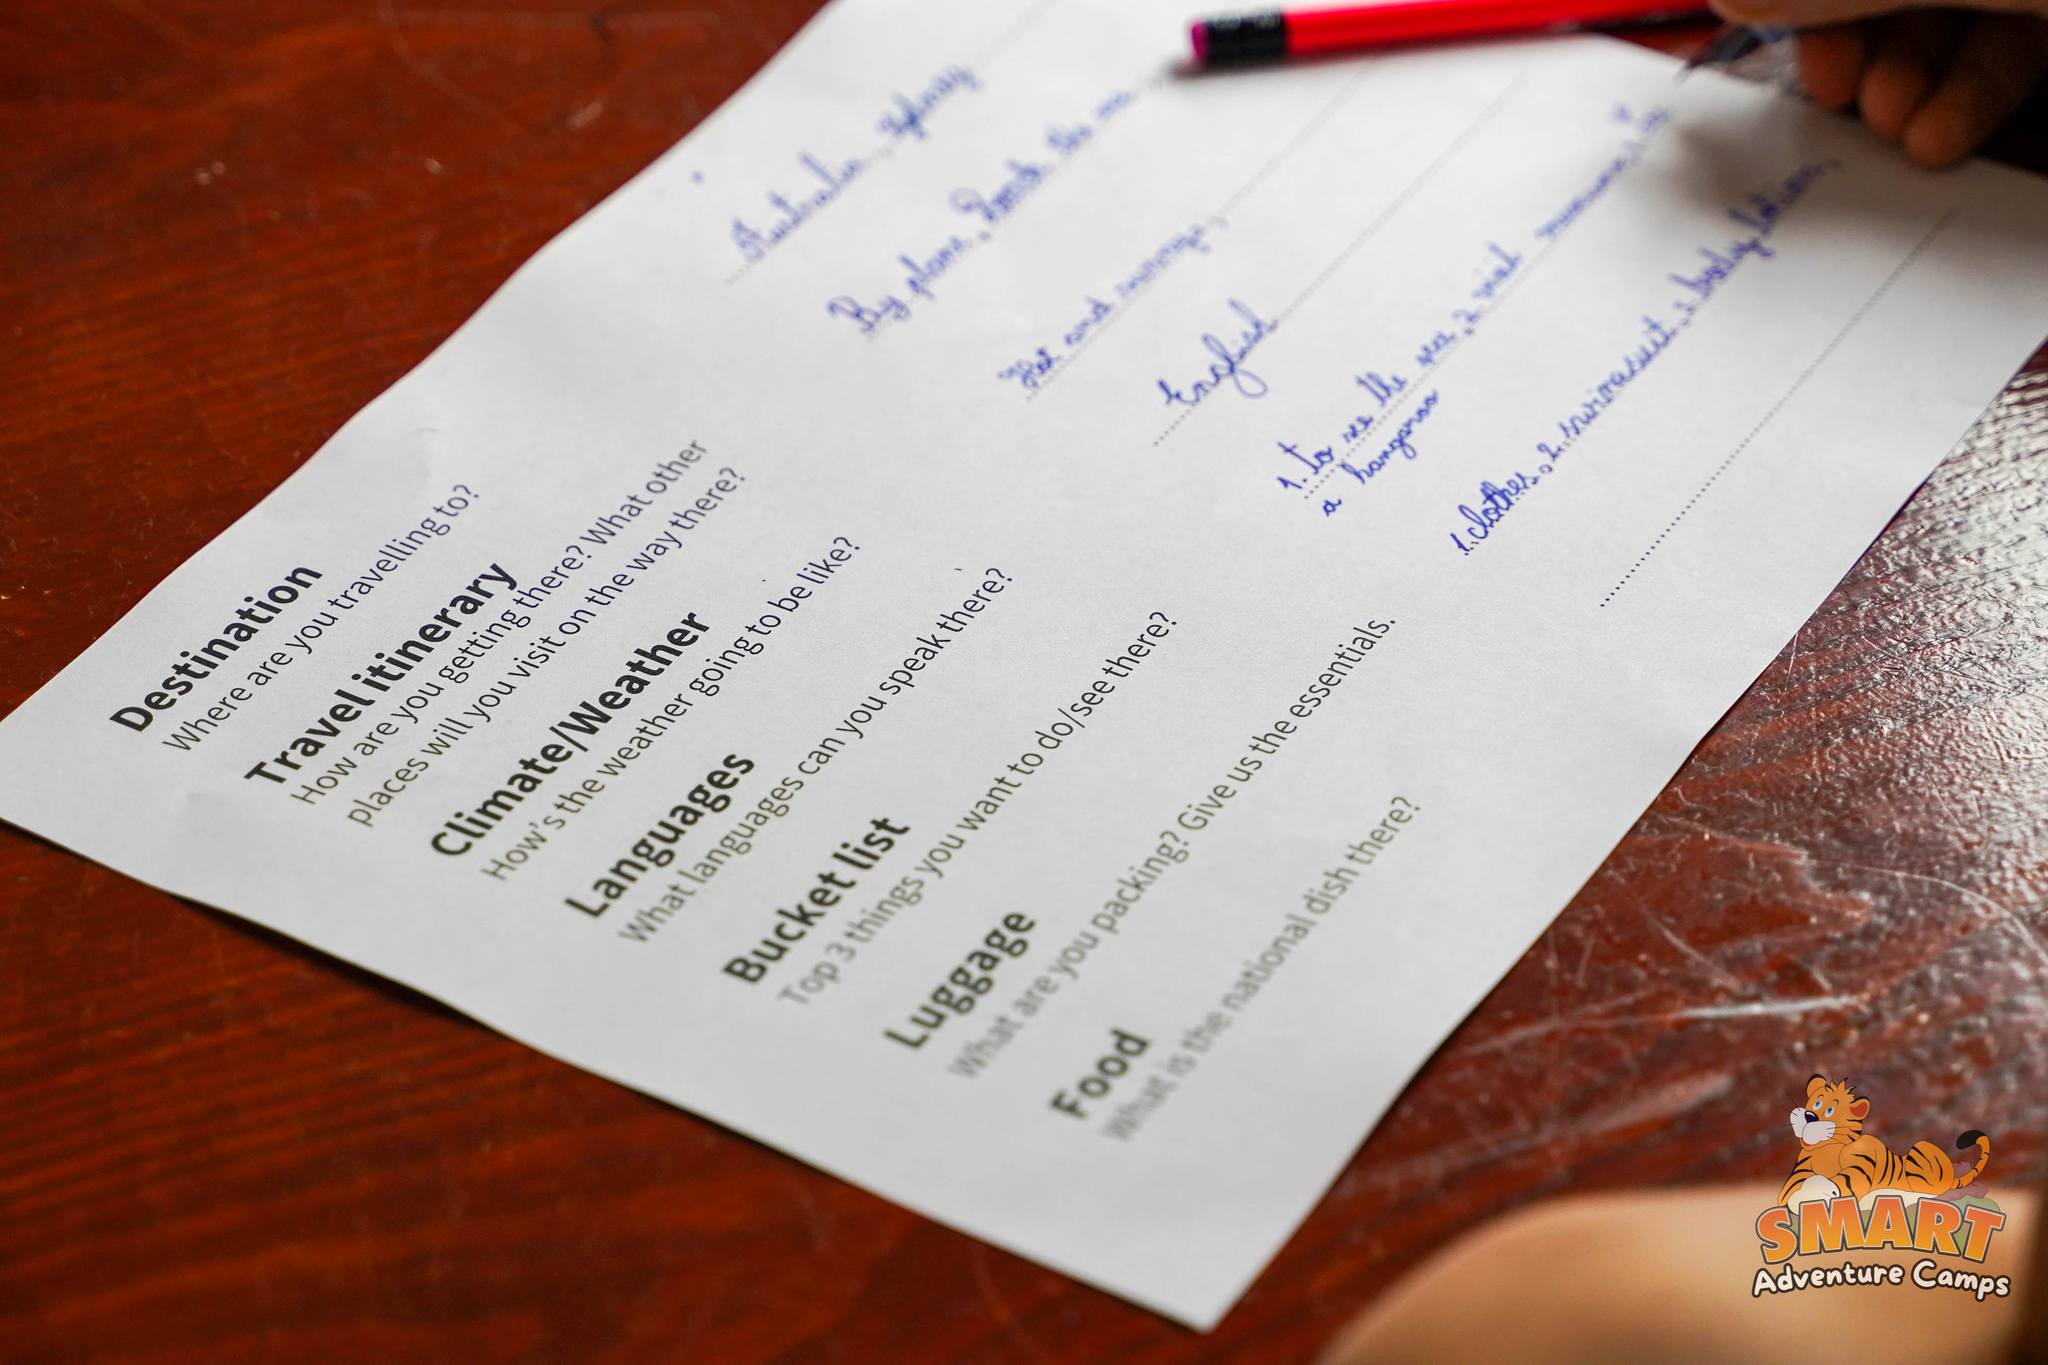 Destination
Where are you travelling to?
Australia, Sydney
Travel itinerary
How are you getting there? What other
places will you visit on the way there?
By plane, the
Climate/Weather
How's the weather going to be like?
Hot and sunny,
Languages
What languages can you speak there?
English
Bucket list
Top 3 things you want to do/see there?
1. to see the sea, 2 visit museum,
a kangaroo
Luggage
What are you packing? Give us the essentials.
1. clothes, 2. swimsuit, body lotion,
Food
What is the national dish there?
SMART
Adventure Camps